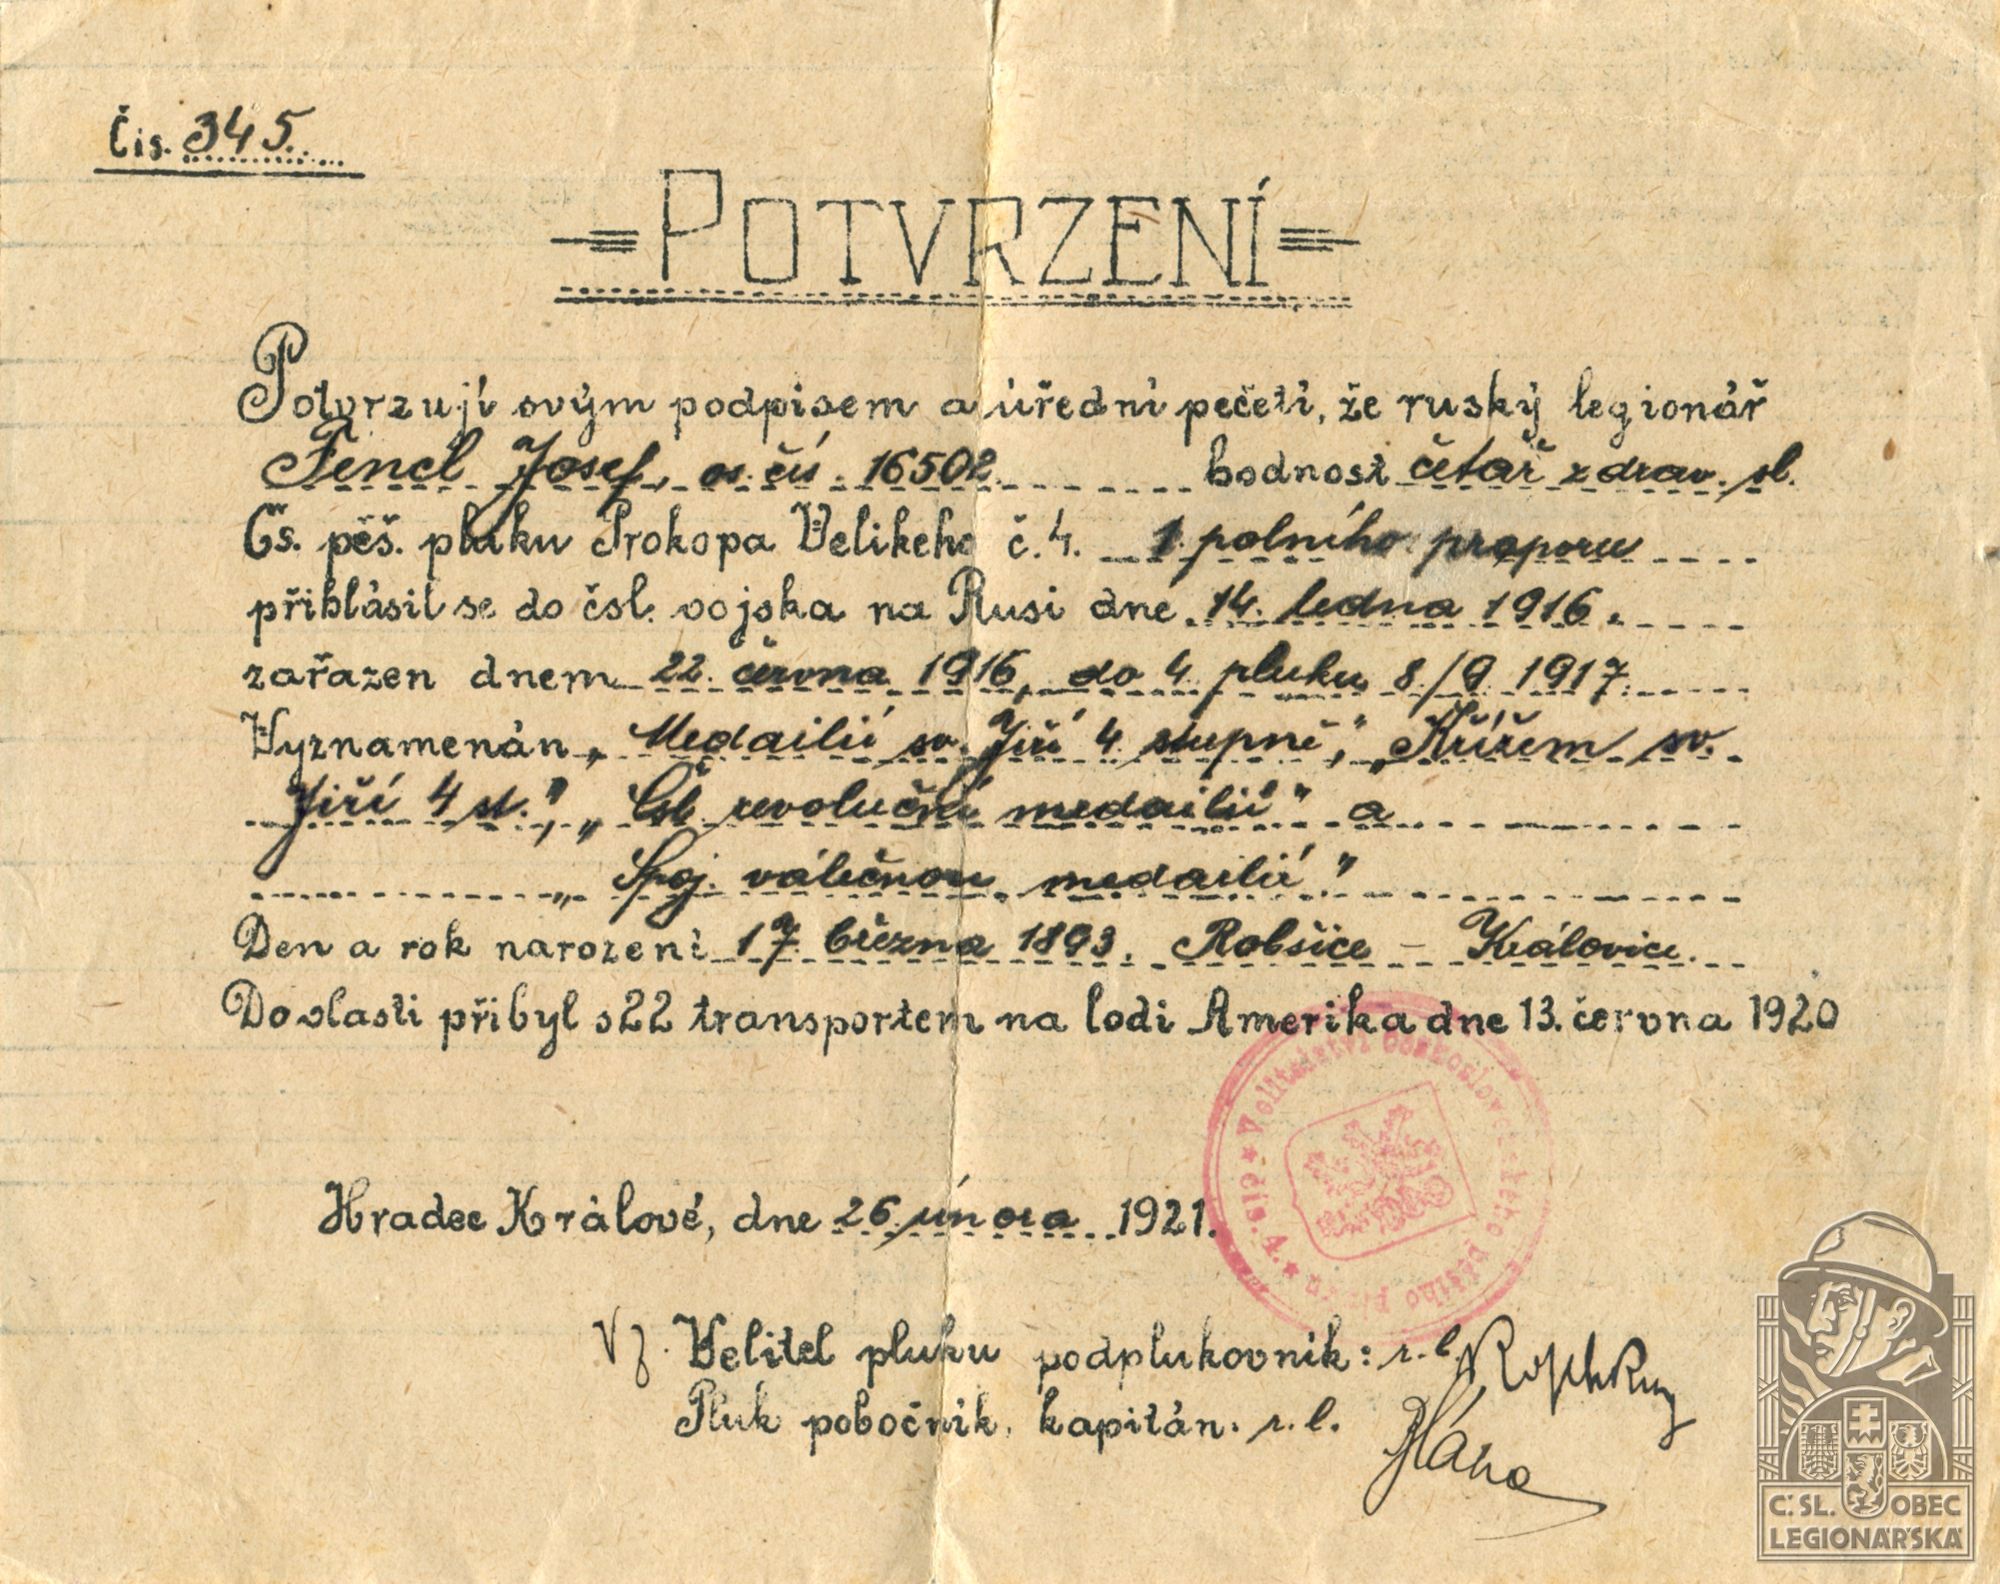 Čís. 345.
POTVRZENÍ
Potvrzuji svým podpisem a úřední pečetí, že ruský legionář
Fencl Josef, os. čís. 16502 hodnost četař zdrav. sl.
Čs. pěš. pluku Prokopa Velikeho č. 4. 1. polního praporu
přihlásil se do čsl. vojska na Rusi dne 14. ledna 1916.
zařazen dnem 22. června 1916, do 4. pluku 8./9. 1917.
Vyznamenán „Medailií sv. Jiří 4. stupně", „Křížem sv.
Jiří 4 st.", „Čsl. revoluční medailií" a
„Spoj. válečnou medailií."
Den a rok narození 17. března 1893. Robšice - Královice.
Do vlasti přibyl s 22 transportem na lodi Amerika dne 13. června 1920
★ Velitelství československého pěšího pluku ★ čís. 4.
Hradec Králové, dne 26. února 1921.
Vz. Velitel pluku podplukovník: r. l.
Pluk pobočník, kapitán: r. l. Hána
Č. SL. OBEC
LEGIONÁŘSKÁ